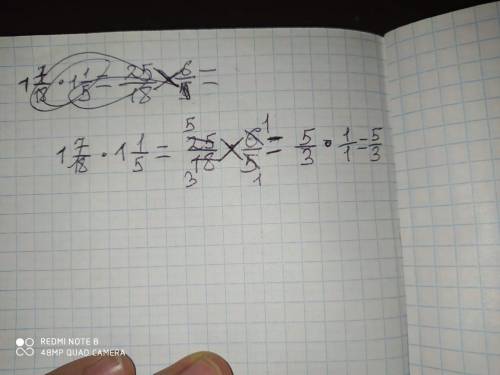 1 7/18 · 1 1/5 = 25/18 × 6/5 =
5 1
1 7/18 · 1 1/5 = 25/18 × 6/5 = 5/3 · 1/1 = 5/3
3 1
REDMI NOTE 8
48MP QUAD CAMERA